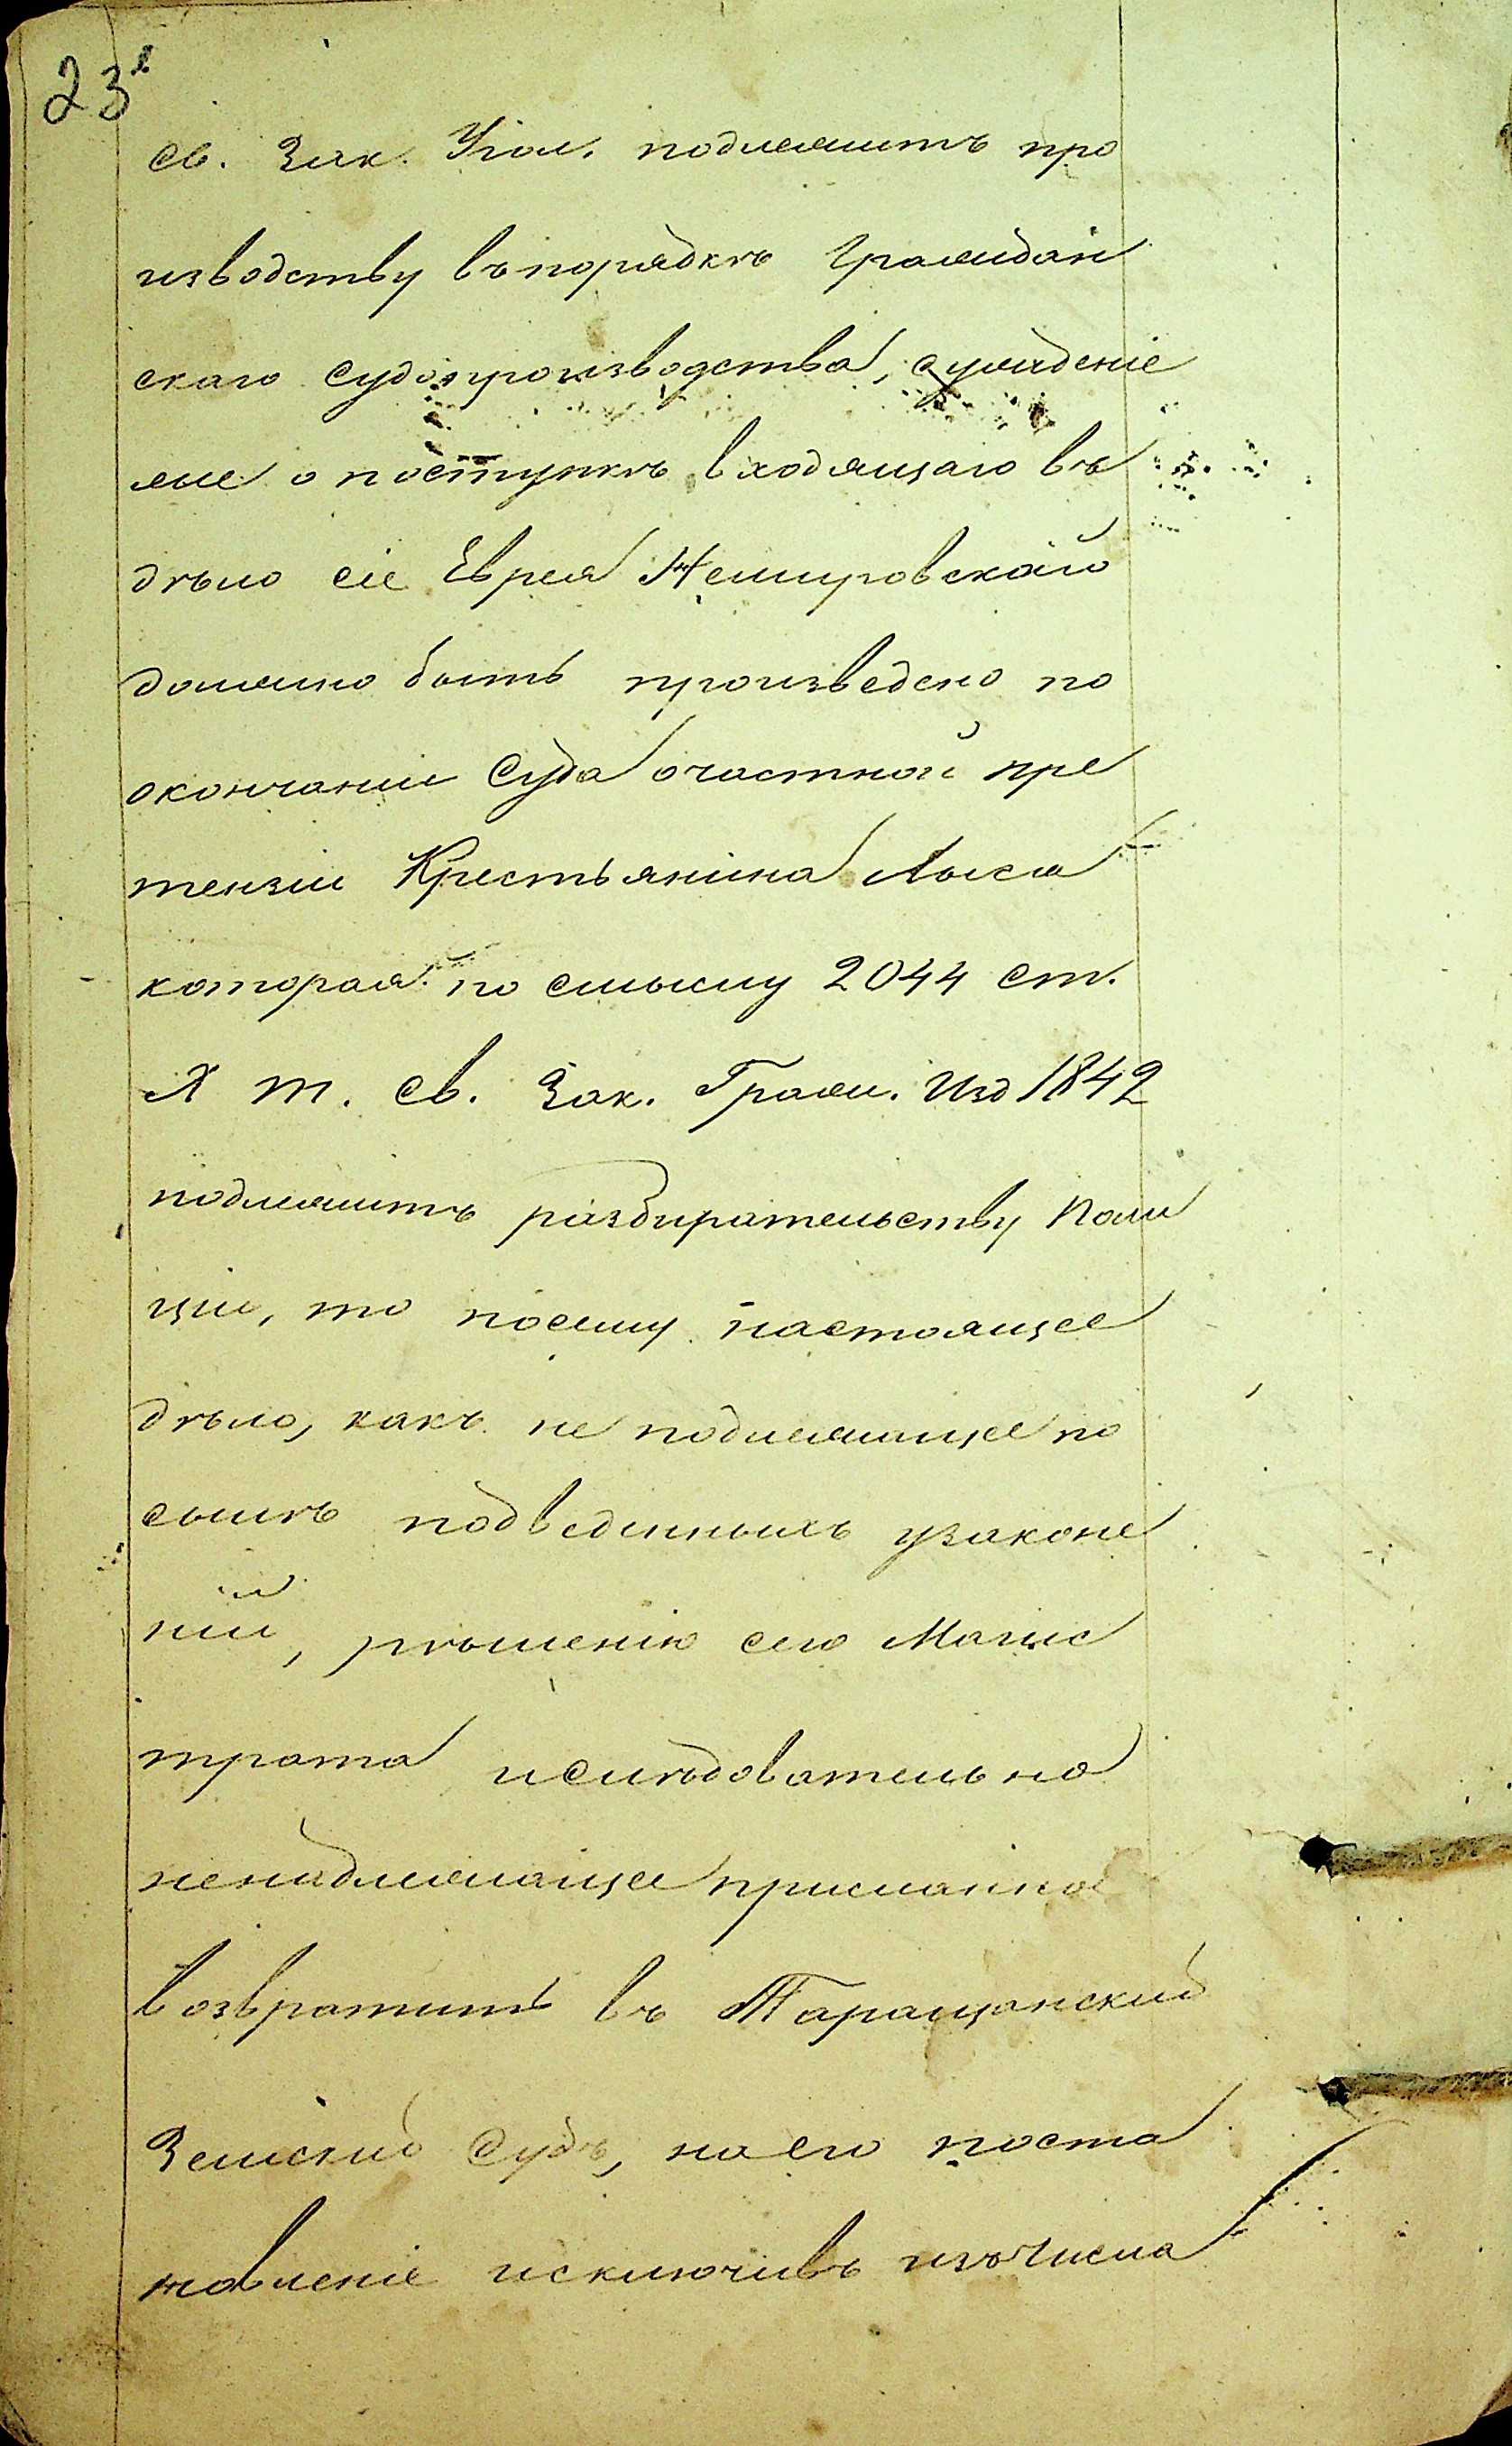 23
св. Зак. Угол. подлежитъ про
изводству въ порядкѣ Граждан
скаго судопроизводства, сужденіе
же о поступкѣ входящаго въ
дѣло сіе Еврея Немировскаго
должно быть произведено по
окончаніи Суда о частной пре
тензіи Крестьянина Лыса
которая по смыслу 2044 ст.
X т. св. Зак. Гражд. Изд 1842
подлежитъ разбирательству Поли
ціи, то посему настоящее
дѣло, какъ не подлежащее по
силѣ подведенныхъ узаконе
ній, рѣшенію сего Магис
трата и слѣдовательно
ненадлежаще присланное
возвратить въ Таращанскій
Земскій Судъ, на его поста
новленіе исключивъ изъ числа